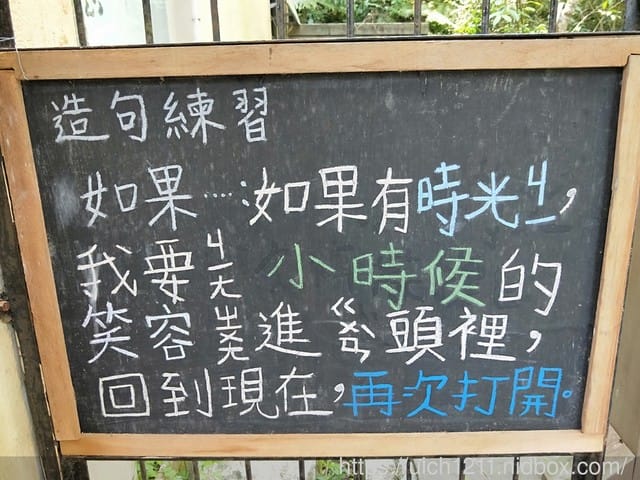 造句練習
如果……:如果有時光ㄐㄧ,
我要ㄐㄧㄤ小時候的
笑容ㄓㄨㄤ進ㄍㄨㄢˋ頭裡,
回到現在,再次打開。